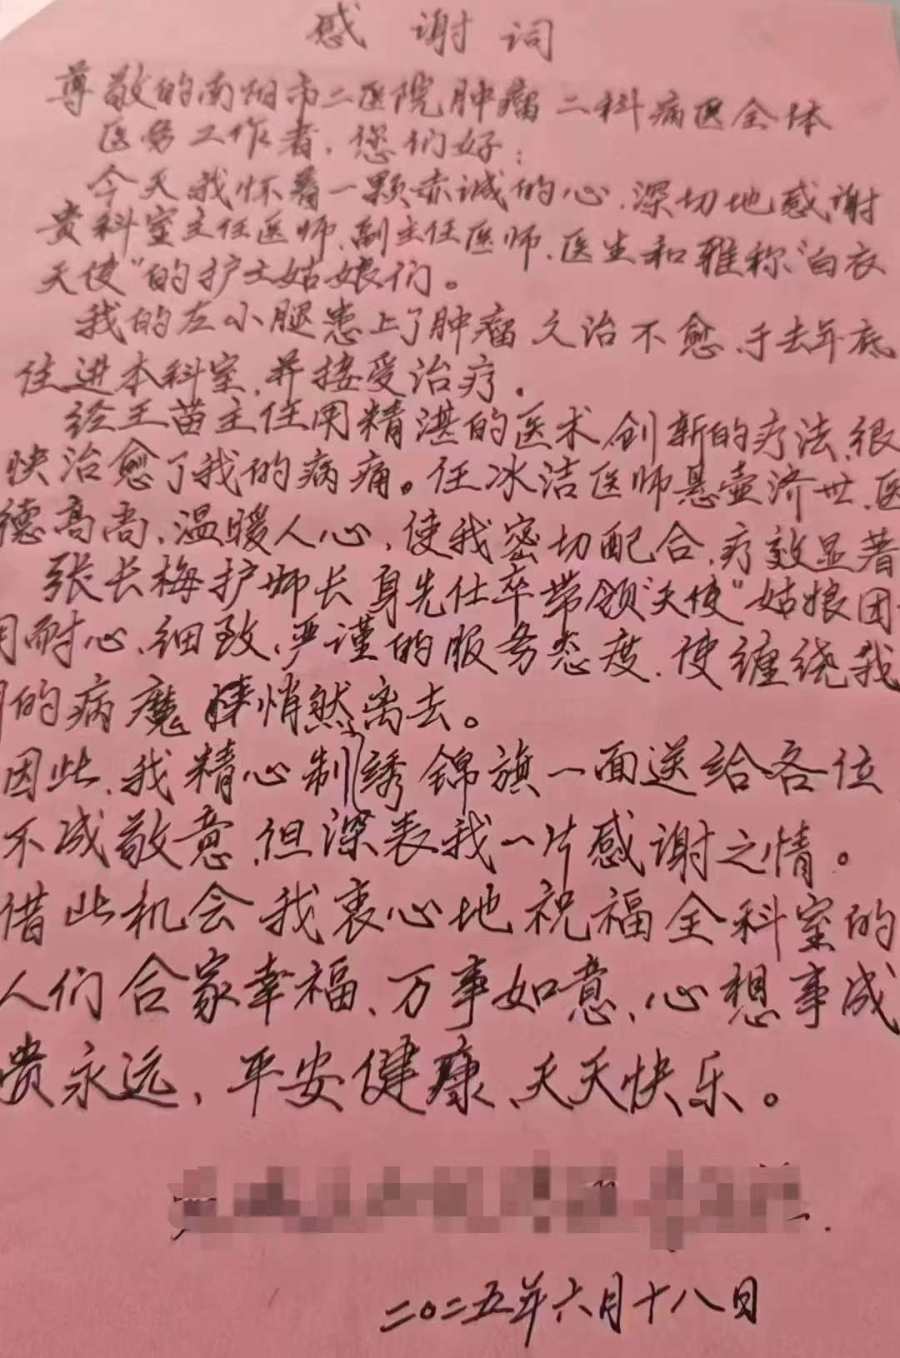 感谢词
尊敬的南阳市二医院肿瘤二科病医全体
医务工作者，您们好：
今天我怀着一颗赤诚的心，深切地感谢
贵科室主任医师、副主任医师、医生和雅称“白衣
天使”的护士姑娘们。
我的左小腿患上了肿瘤久治不愈，于去年底
住进本科室，并接受治疗。
经王苗主任用精湛的医术创新的疗法，很
快治愈了我的病痛。任冰洁医师悬壶济世，医
德高尚，温暖人心，使我密切配合，疗效显著
张长梅护师长身先仕卒带领“天使”姑娘团
用耐心、细致、严谨的服务态度，使缠绕我
的病魔悄然离去。
因此，我精心制绣锦旗一面送给各位
不成敬意，但深表我一片感谢之情。
借此机会我衷心地祝福全科室的
人们合家幸福、万事如意、心想事成
贵永远、平安健康、天天快乐。
二〇二五年六月十八日